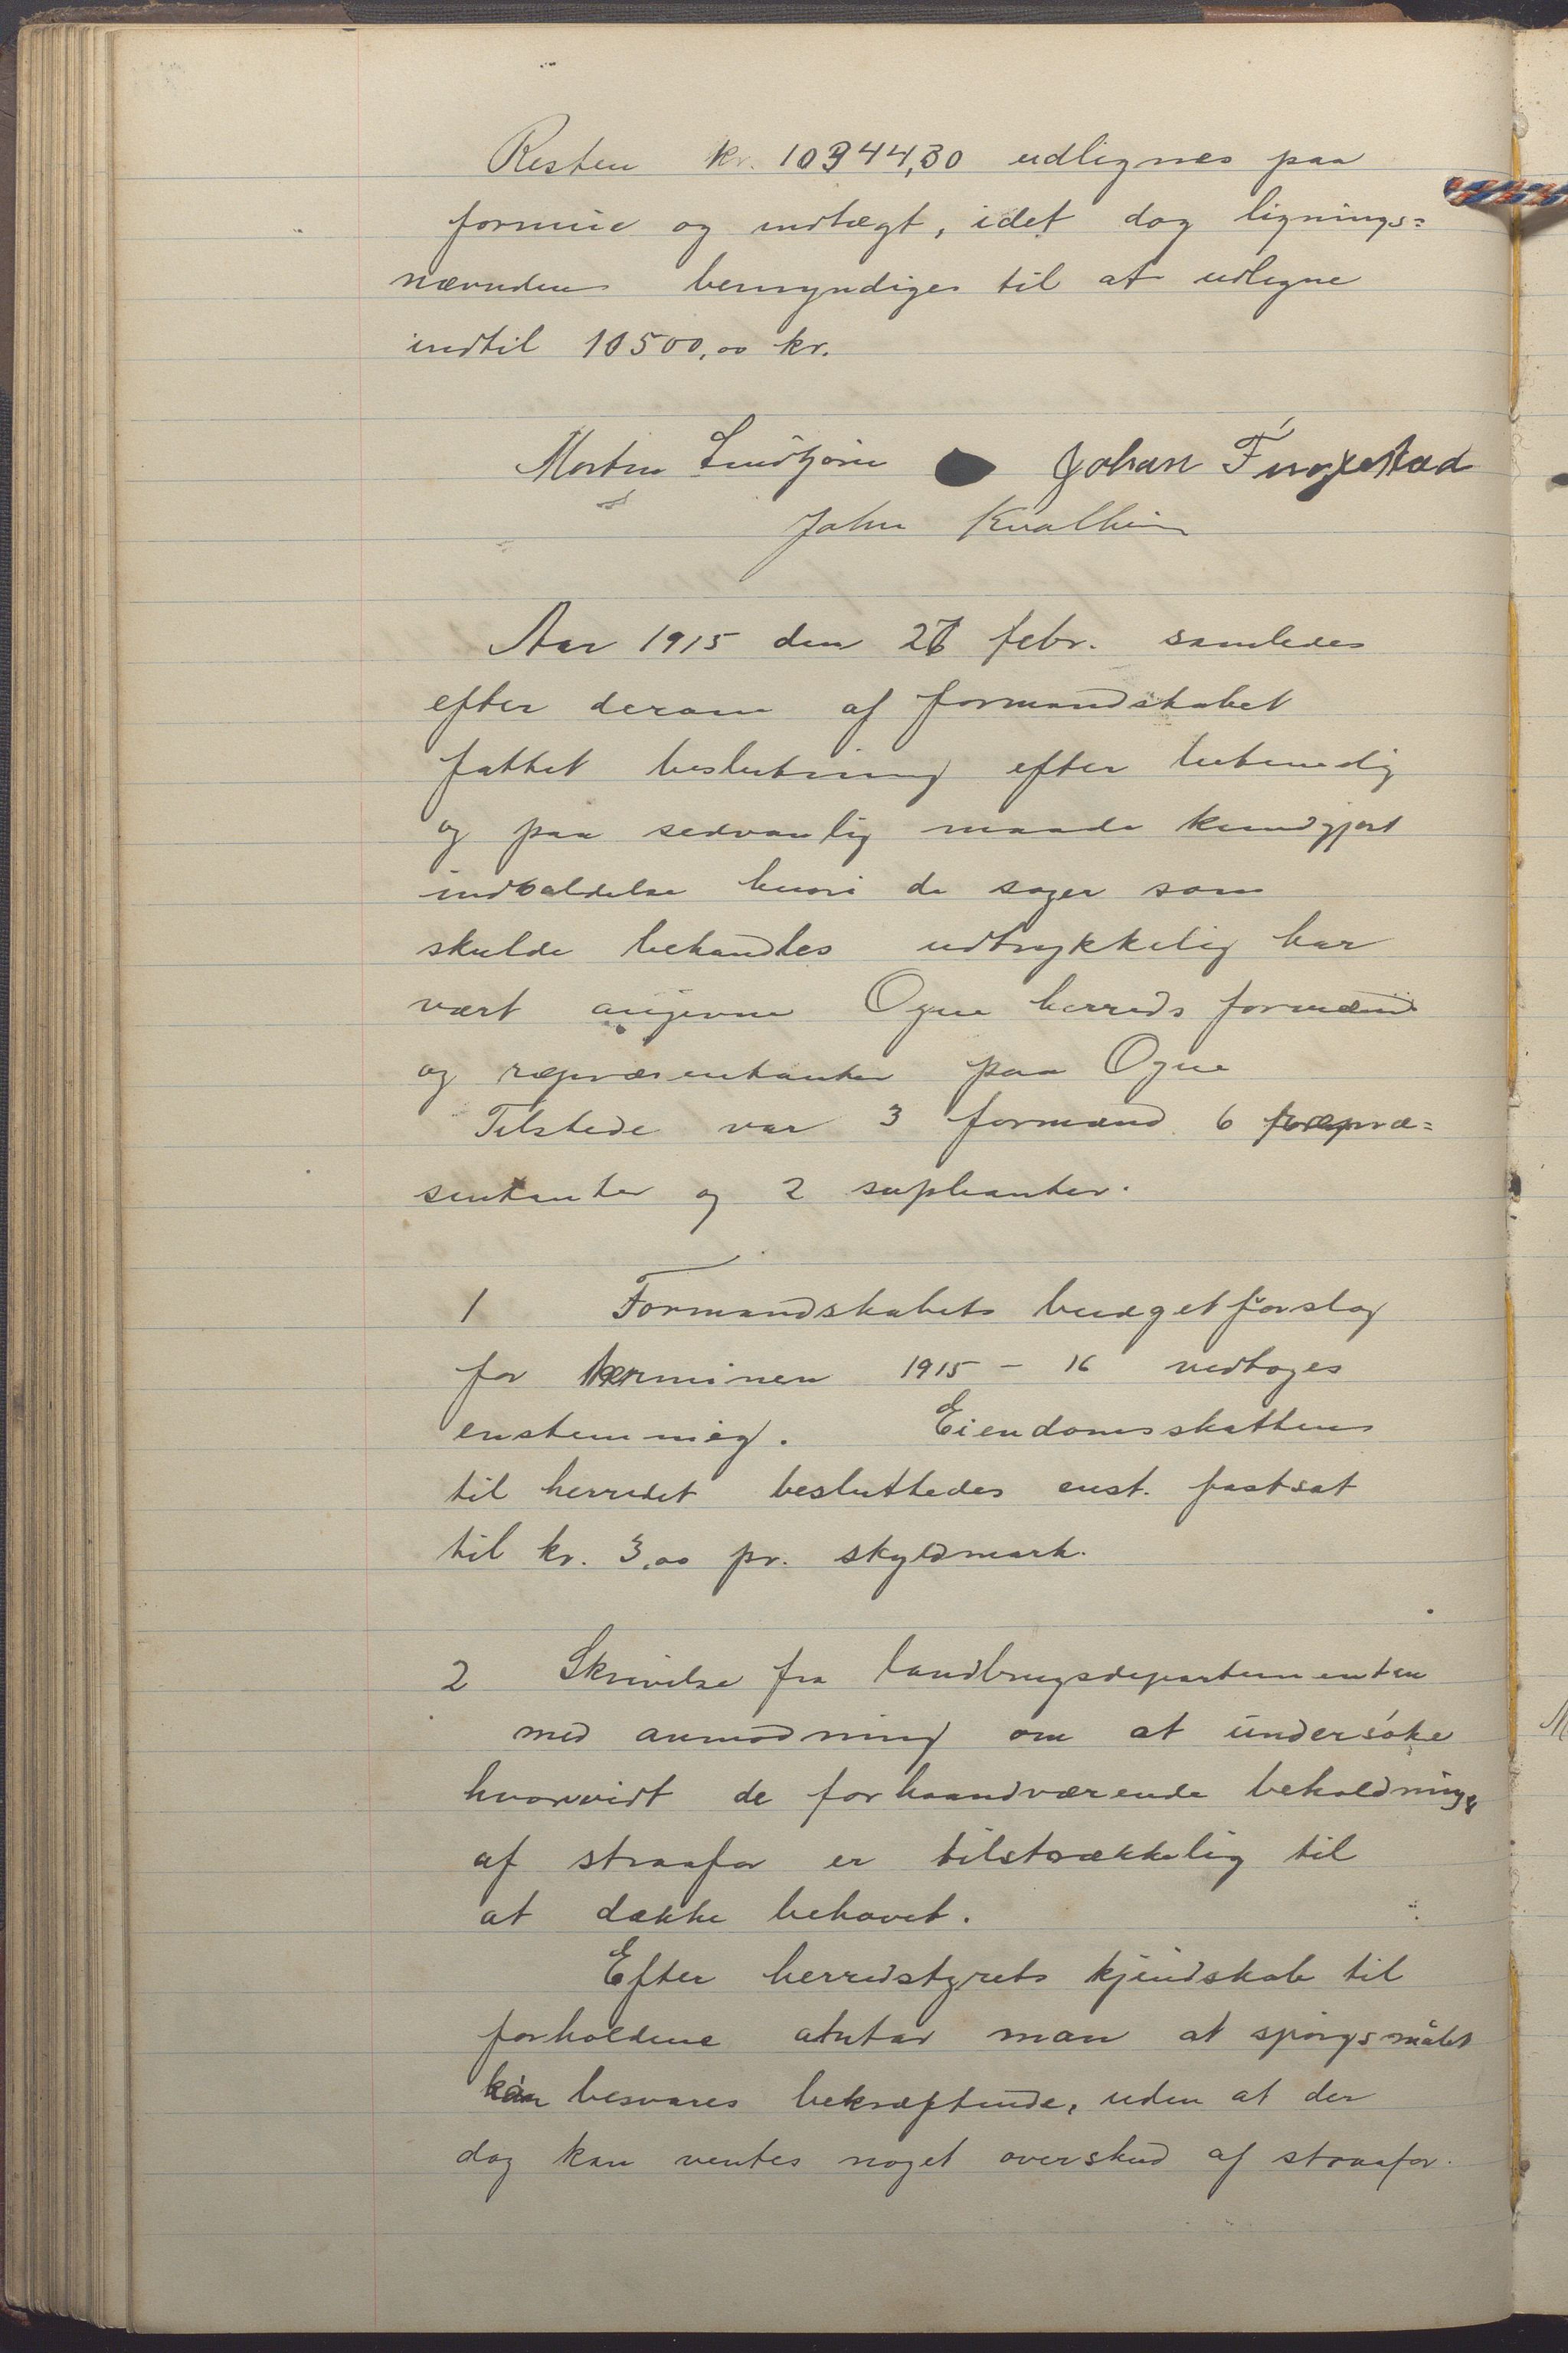 Resten kr. 10344,30 udlignes paa
formue og indtægt, idet dog lignings=
nævnden bemyndiges til at udligne
indtil 10500,00 kr.
Morten Johan
John Kvalheim
Aar 1915 den 26 febr. samledes
efter derom af formandskabet
fattet beslutning efter betimelig
og paa sedvanlig maade kundgjort
indkaldelse hvori de sager som
skulde behandles udtrykkelig har
vært angivne Ogne herreds formænd
og repræsentanter paa Ogne
Tilstede var 3 formænd 6 repræ=
sentanter og 2 suplianter.
1 Formandskabets budgetforslag
for terminen 1915 - 16 vedtoges
enstemmig. Eiendomsskatten
til herredet besluttedes enst. fastsat
til kr. 3,00 pr. skyldmark.
2 Skrivelse fra landbrugsdepartementen
med anmodning om at undersøke
hvorvidt de forhaandværende beholdninge
af straafor er tilstrækkelig til
at dække behovet.
Efter herredstyrets kjendskab til
forholdene antar man at spørgsmålet
kan besvares bekræftende, uden at der
dog kan ventes noget overskud af straafor.